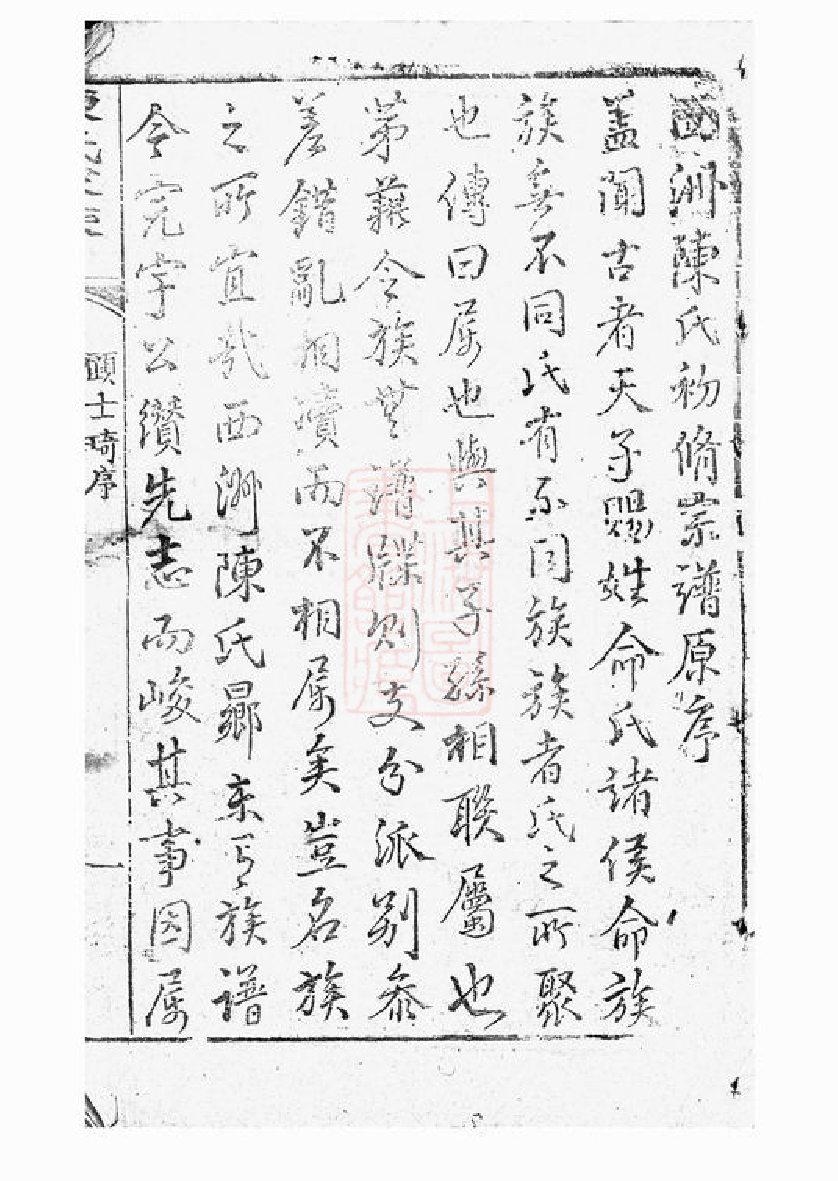 洲陳氏初脩宗譜原序
蓋聞古者天子賜姓命氏諸侯命族
族無不同氏有不同族族者氏之所聚
也傳曰属也與其子孫相聯屬也
苐藉令族無譜牒則支分派别叅
差錯亂相瀆而不相属矣豈名族
之所宜哉西洲陳氏曏未有族譜
今完宇公纘先志而峻其事因属
顧士琦序
一